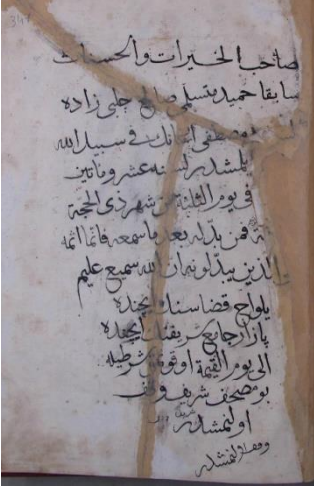 صاحب الخيرات والحسنات
سابقا حميد متسلمى صالح چلبى زاده
مصطفى اغانك فى سبيل الله
لسنه عشر ومأتين
فى يوم الثلثة من شهر ذى الحجة
فمن بدله بعد ما سمعه فانما اثمه
الذين يبدلونه ان الله سميع عليم
يلواج قضاسنك ايچنده
پازار جامع شريفنك ايچنده
الى يوم القيمة اوقونمق شرطيله
بو مصحف شريف وقف
اولنمشدر
وقف اولنمشدر